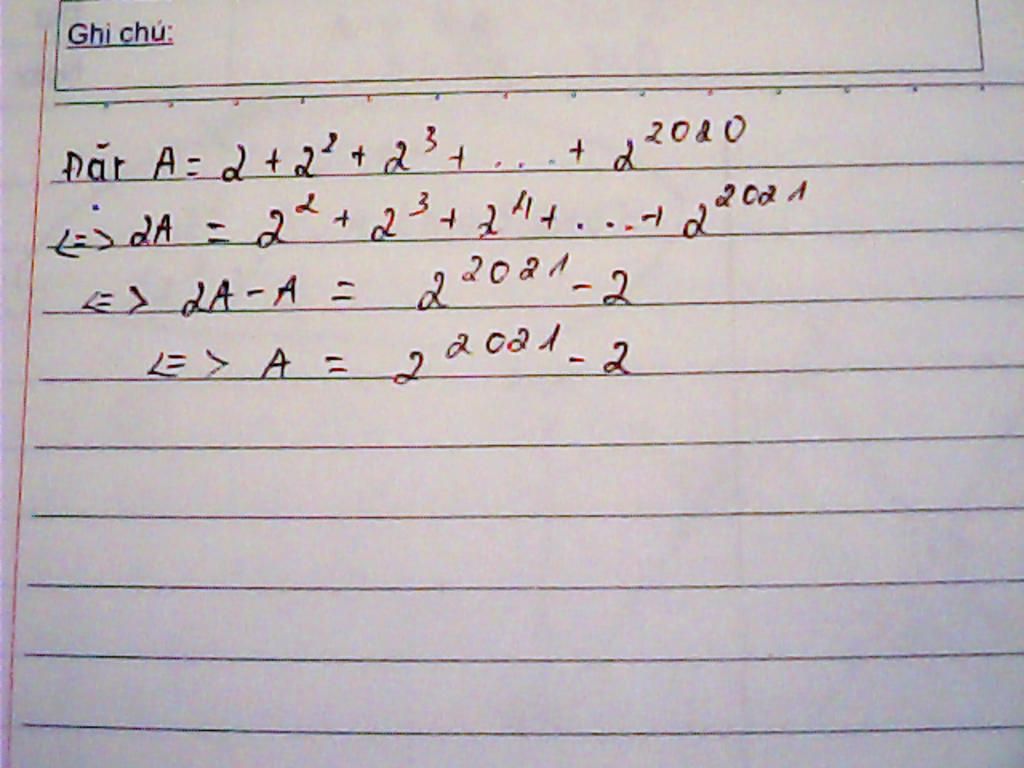 Ghi chú:
Đặt A = 2 + 2² + 2³ + ... + 2²⁰²⁰
<=> 2A = 2² + 2³ + 2⁴ + ... + 2²⁰²¹
<=> 2A - A = 2²⁰²¹ - 2
<=> A = 2²⁰²¹ - 2